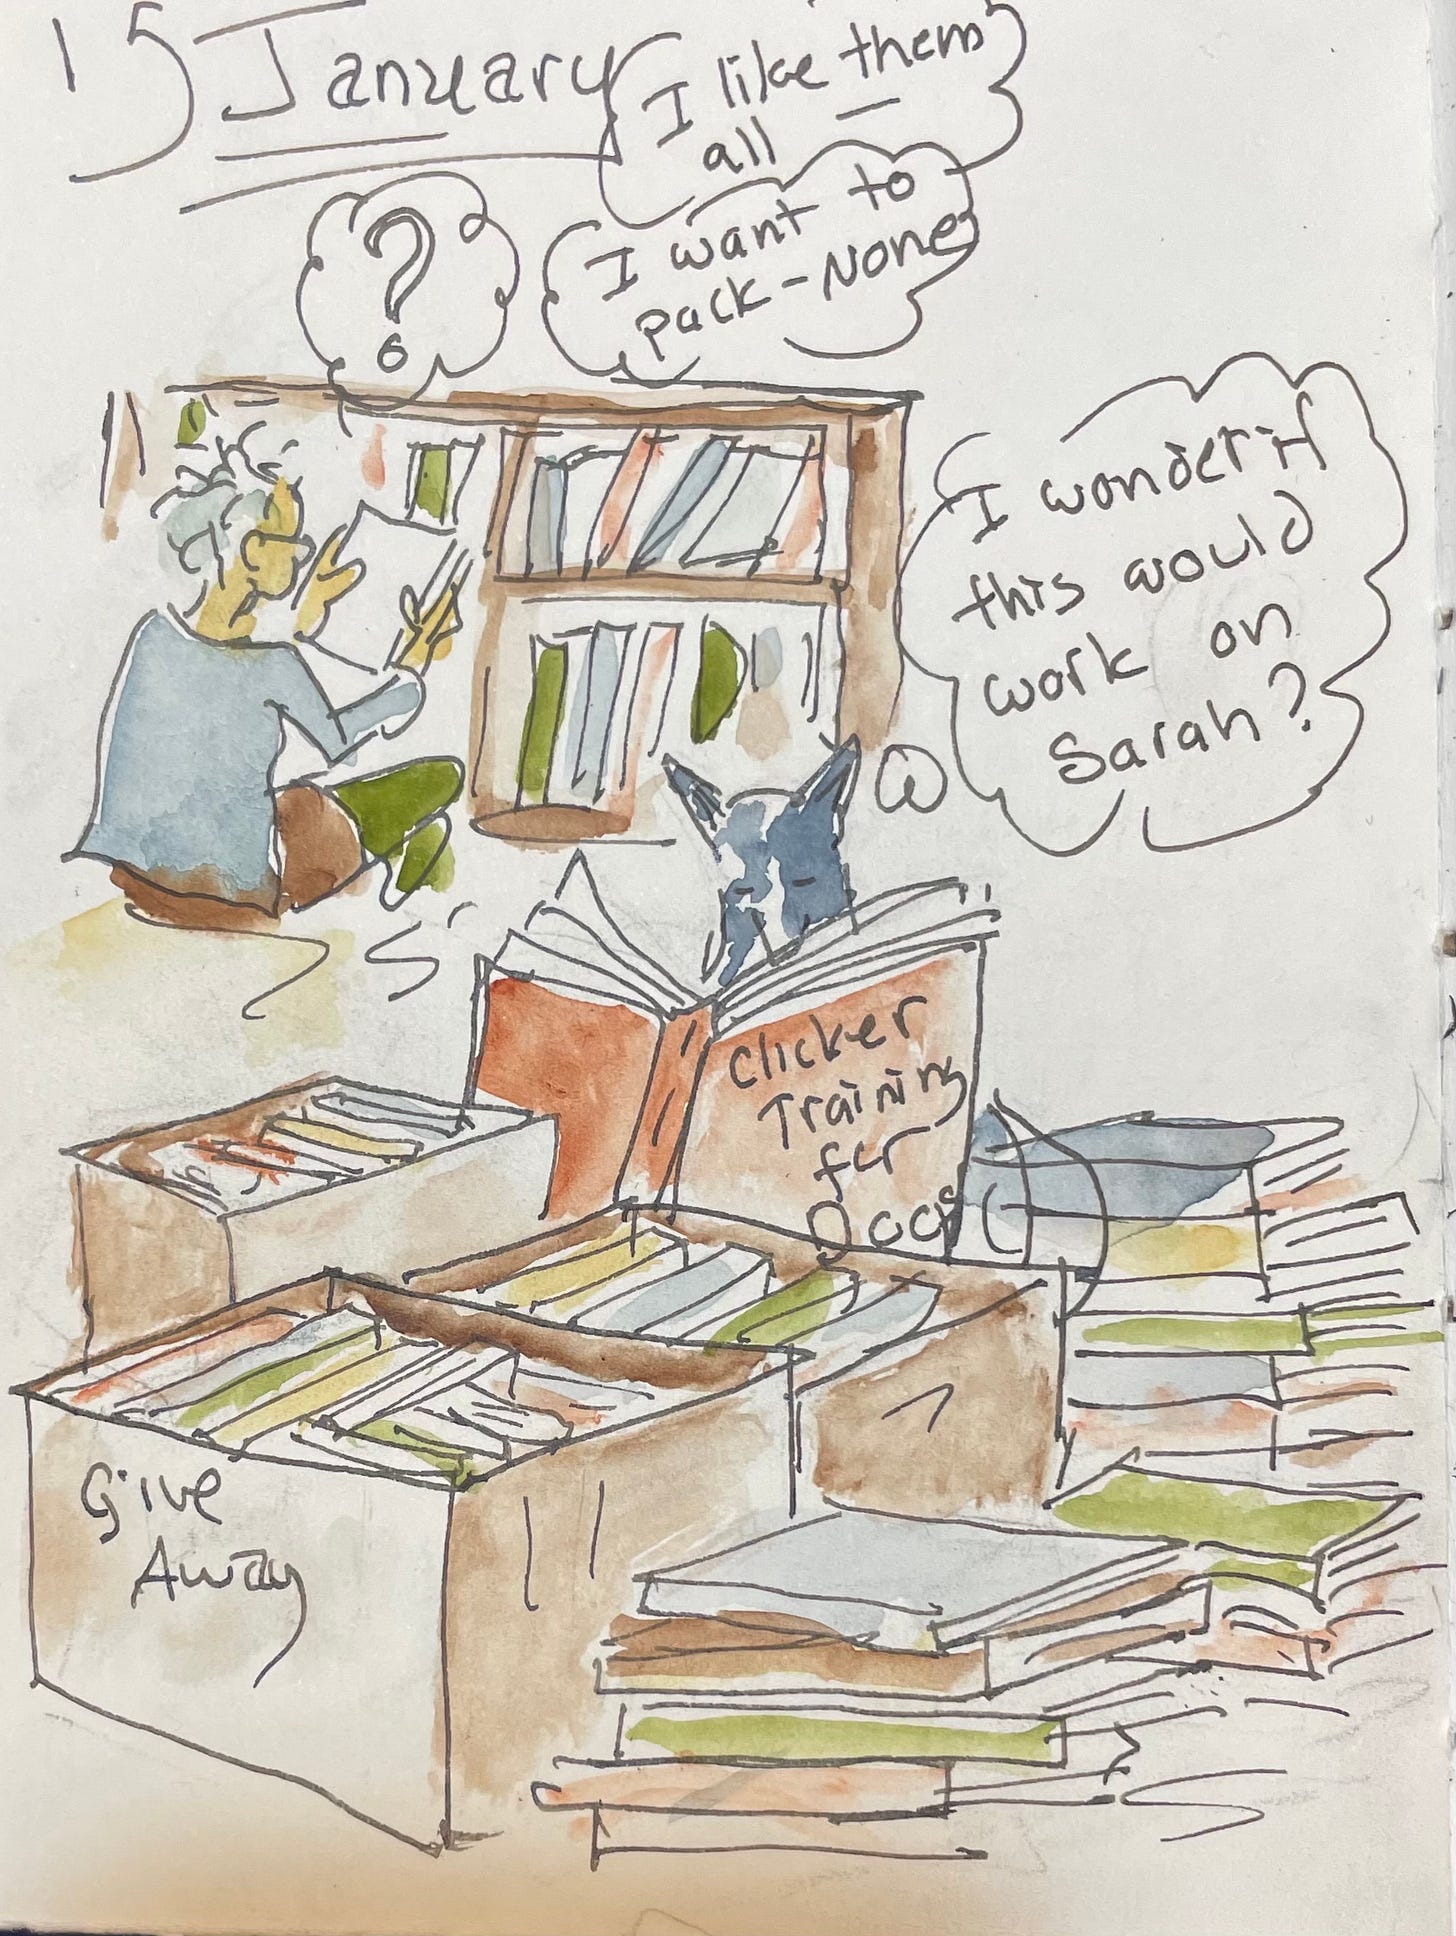 15 January
I like them
all
?
I want to
pack - None
I wonder if
this would
work on
Sarah?
Clicker
Training
for
Dogs
Give
Away